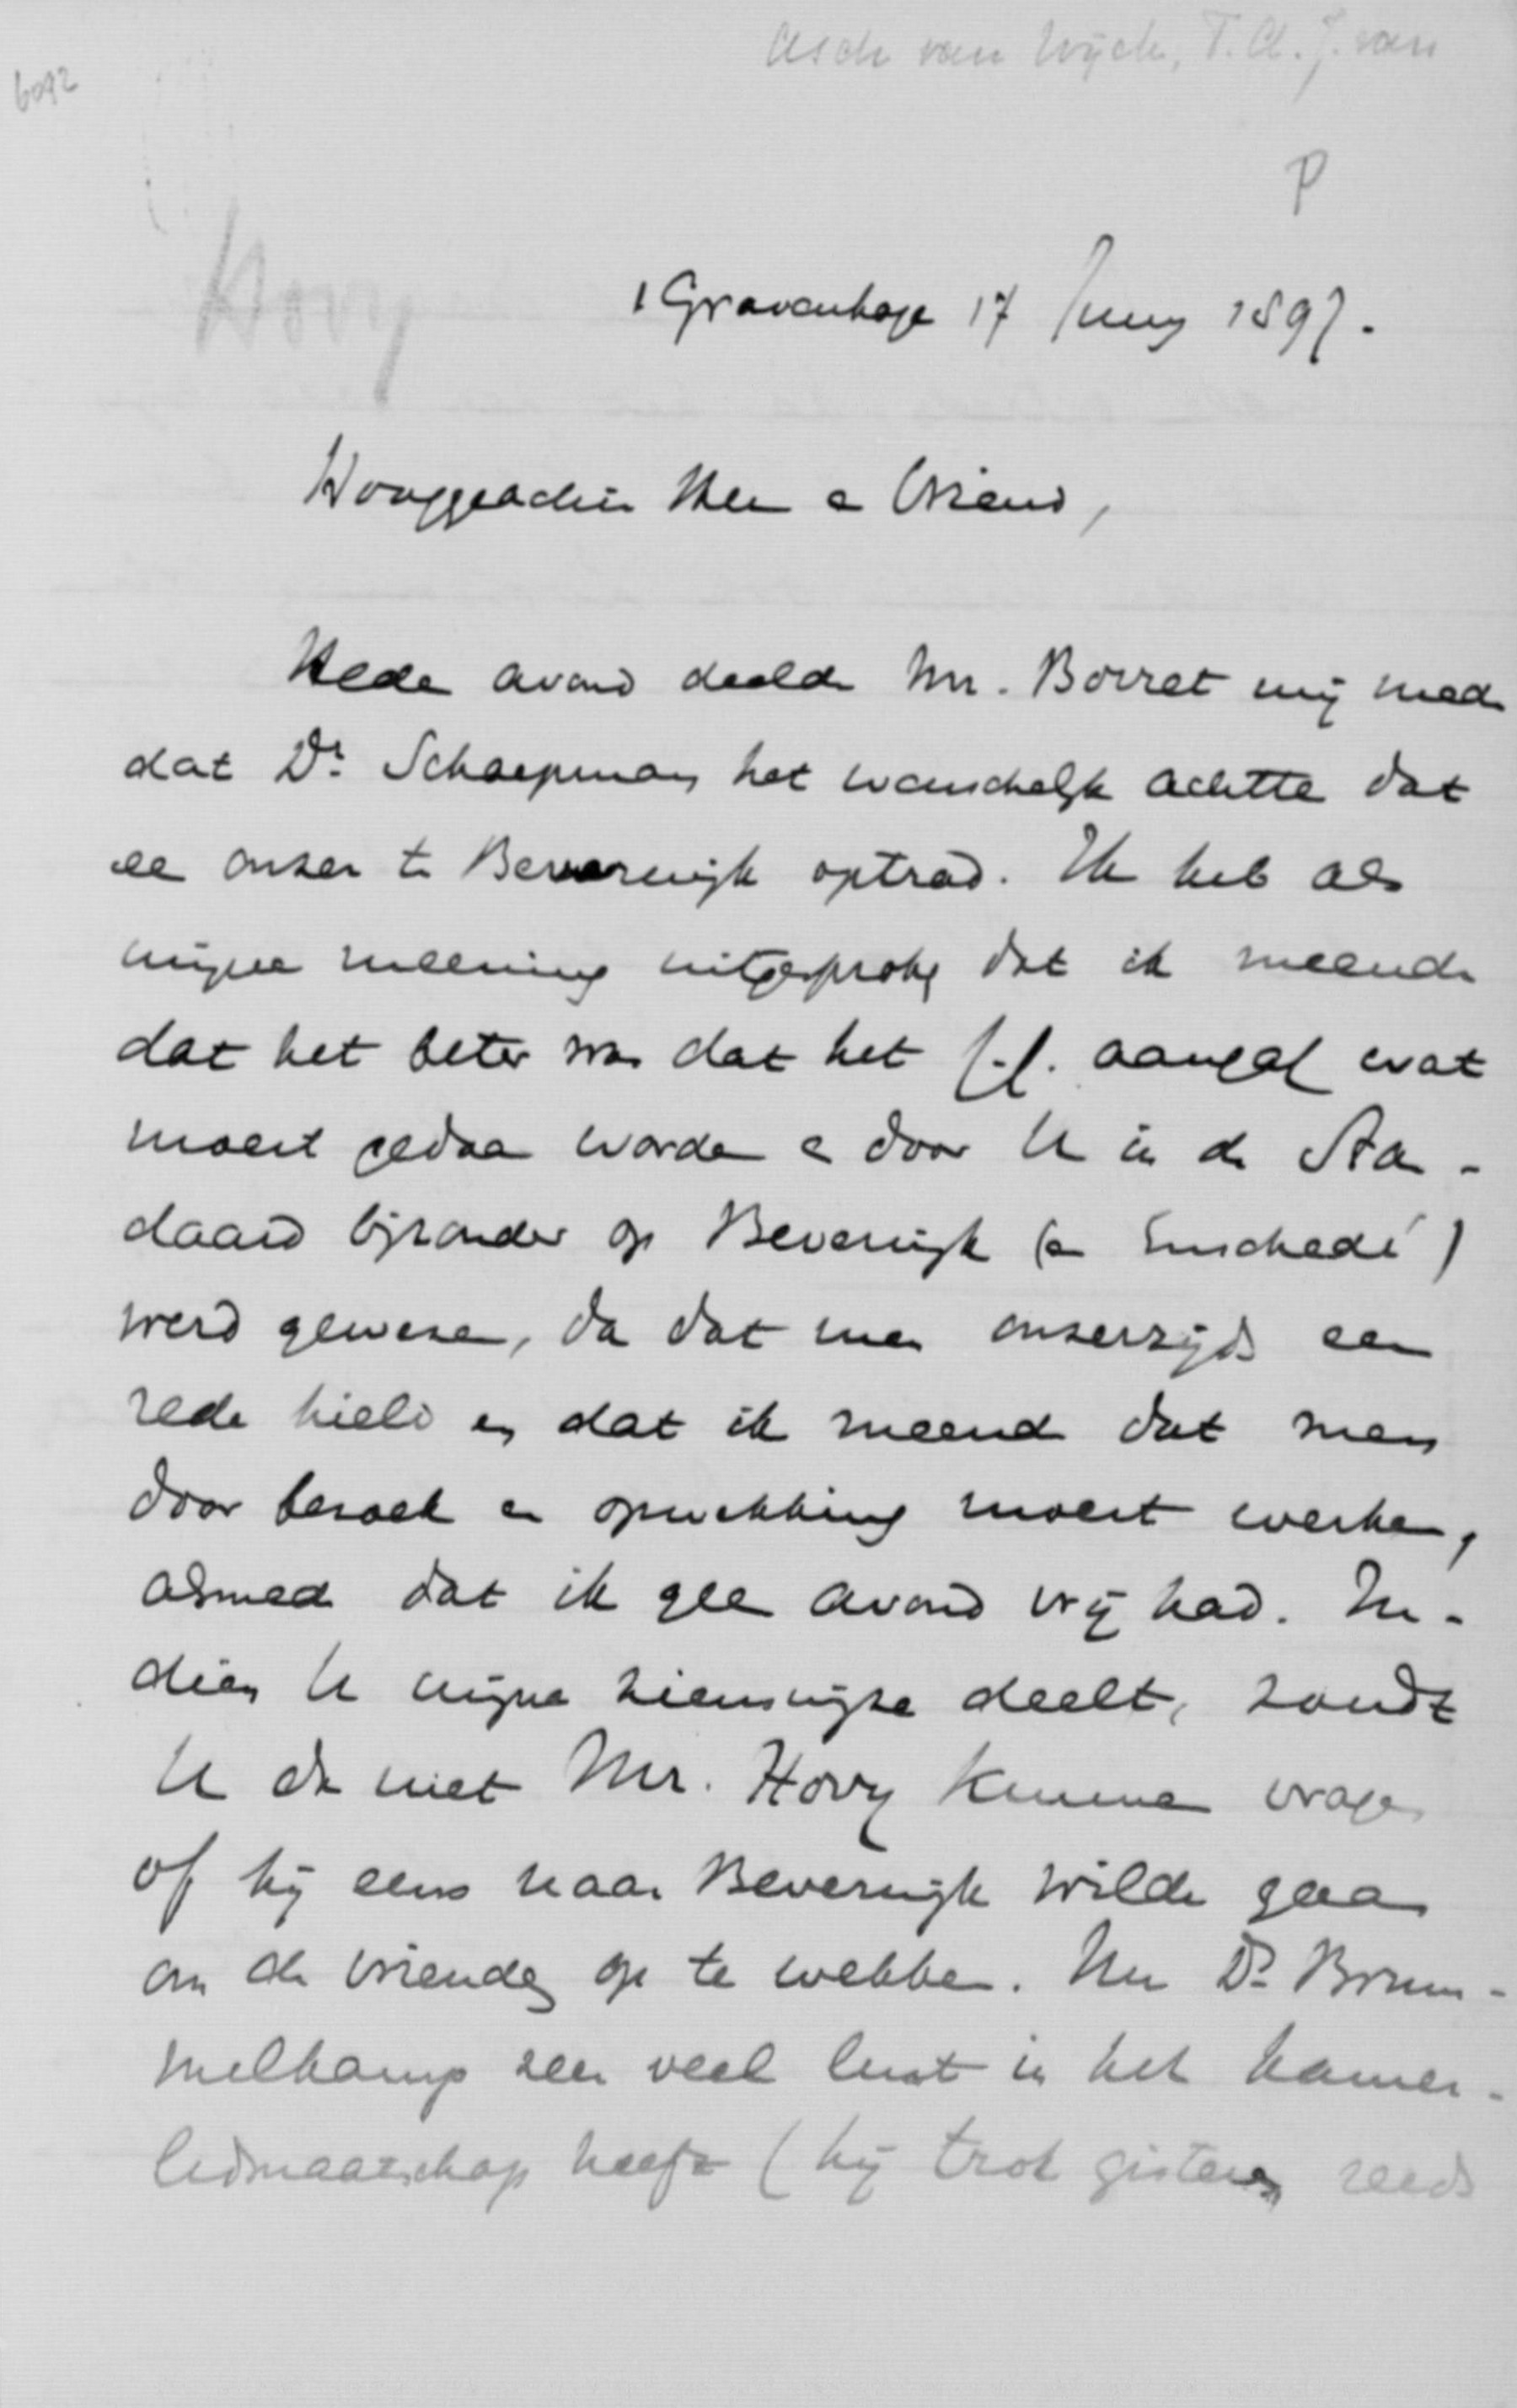 Asch van Wijck, T. A. J. van
6092
P
Hovy
's Gravenhage 17 Juny 1897.
Hooggeachte Heer en Vriend,
Heden avond deelde Mr. Borret mij mede
dat Dr. Schaepman het wenschelijk achtte dat
een onzer te Beverwijk optrad. Ik heb als
mijne meening uitgesproken dat ik meende
dat het beter was dat het C.C. aangaf wat
moest gedaan worden en door U in de Stan-
daard bijzonder op Beverwijk (en Enschedé)
werd gewezen, dan dat men onzerzijds een
rede hield en dat ik meende dat men
door bezoek en opwekking moest werken,
alsmede dat ik geen avond vrij had. In-
dien U mijne zienswijze deelt, zoudt
U dan niet Mr. Hovy kunnen vragen
of hij eens naar Beverwijk wilde gaan
om de vrienden op te wekken. Nu Dr. Brum-
melkamp zeer veel lust in het Kamer-
lidmaatschap heeft (hij trok gisteren reeds